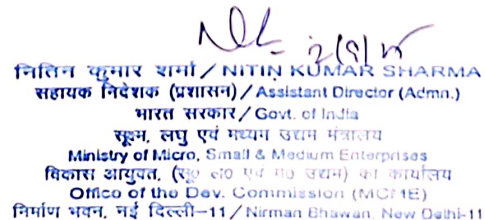 नितिन कुमार शर्मा / NITIN KUMAR SHARMA
सहायक निदेशक (प्रशासन) / Assistant Director (Admn.)
भारत सरकार / Govt. of India
सूक्ष्म, लघु एवं मध्यम उद्यम मंत्रालय
Ministry of Micro, Small & Medium Enterprises
विकास आयुक्त, (सू० ल० एवं म० उद्यम) का कार्यालय
Office of the Dev. Commission (MCME)
निर्माण भवन, नई दिल्ली-11 / Nirman Bhawan, New Delhi-11